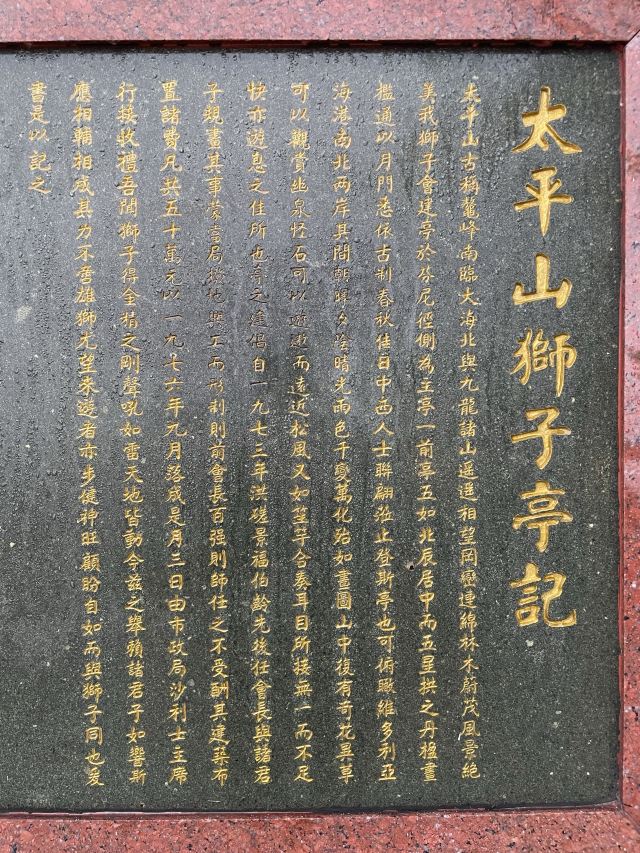 太平山獅子亭記
太平山古稱鰲峰南臨大海北與九龍諸山遙遙相望岡巒連綿林木蔚茂風景絕
美我獅子會建亭於芬尼徑側為主亭一前亭五如北辰居中而五星拱之丹楹畫
檻通以月門悉依古制春秋佳日中西人士聯翩蒞止登斯亭也可俯瞰維多利亞
海港南北兩岸其間朝暉夕陰晴光雨色千變萬化殆如畫圖山中復有奇花異草
可以觀賞幽泉怪石可以遊遨而遠近松風又如笙竽合奏耳目所接無一而不足
快亦遊息之佳所也亭之建倡自一九七三年洪磋景福伯齡先後任會長與諸君
子規畫其事蒙當局撥地興工而形制則前會長百强則師任之不受酬其建築布
置諸費凡共五十萬元以一九七六年九月落成是月三日由市政局沙利士主席
行接收禮吾聞獅子得全精之剛聲吼如雷天地皆動今茲之舉賴諸君子如響斯
應相輔相成其力不啻雄獅尤望來遊者亦步健神旺顧盼自如而與獅子同也爰
書是以記之